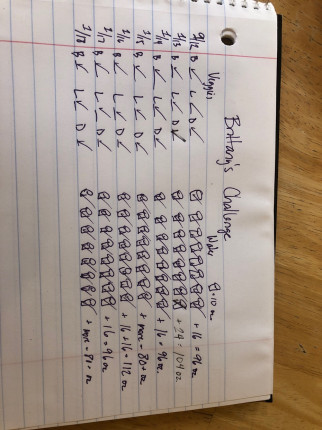 Brittany's Challenge
Veggies Water 8 = 10 oz
9/12 B ✓ L ✓ D ✓ + 16 = 96 oz
1/13 B ✓ L ✓ D ✓ + 24 = 104 oz
1/14 B ✓ L ✓ D ✓ + 16 = 96 oz
1/15 B ✓ L ✓ D ✓ + more = 80+ oz
1/16 B ✓ L ✓ D ✓ + 16 + 16 = 112 oz
1/17 B ✓ L ✓ D ✓ + 16 = 96 oz
1/18 B ✓ L ✓ D ✓ + more = 81+ oz